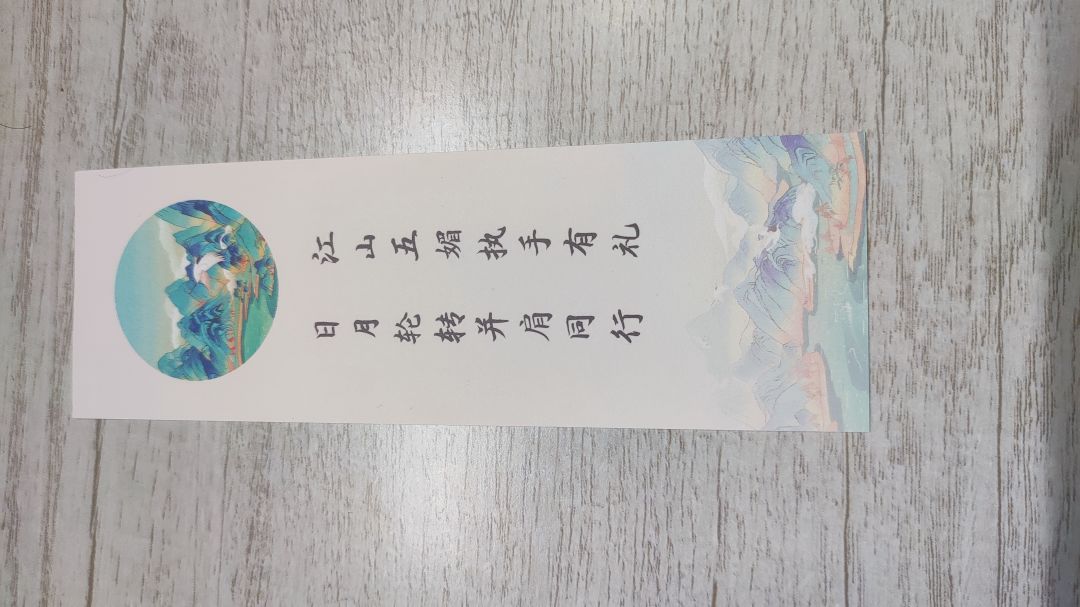 江山五媚执手有礼
日月轮转并肩同行